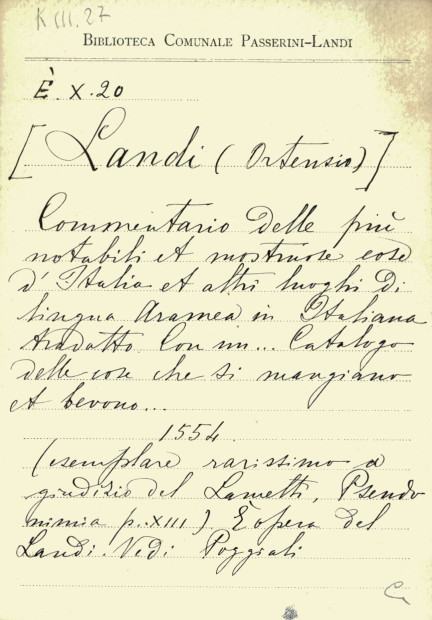 K III. 27
BIBLIOTECA COMUNALE PASSERINI-LANDI
È. X. 20
[Landi (Ortensio)]
Commentario delle più
notabili et mostruose cose
d'Italia et altri luoghi di
lingua Aramea in Italiana
tradotto Con un... Catalogo
delle cose che si mangiano
et bevono...
1554.
(esemplare rarissimo a
giudizio del Lametti, Pseudo
nimia p. XIII) È opera del
Landi. Vedi Poggiali